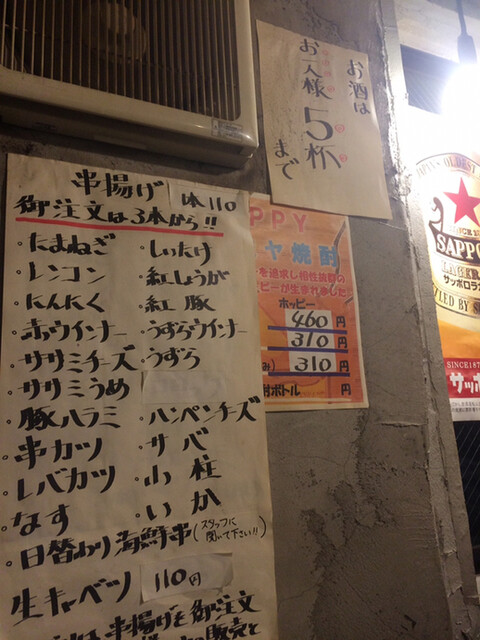 お酒は
お一人様
5杯
まで
串揚げ 1本110
御注文は3本から!!
・たまねぎ ・しいたけ
・レンコン ・紅しょうが
・にんにく ・紅豚
・赤ウインナー ・うずらウインナー
・ササミチーズ ・うずら
・ササミうめ
・豚ハラミ ・ハンペンチーズ
・串カツ ・サバ
・レバカツ ・小柱
・なす ・いか
・日替わり海鮮串(スタッフに聞いて下さい!!)
生キャベツ 110円
串揚げを御注文
の販売と
PPY
ヤ焼酎
を追求し相性抜群の
ピーが生まれました
ホッピー
460円
310円
み) 310円
酎ボトル 円
OLDEST
SINCE
SAPPO
LAGER
サッポロラガ
LED BY
SINCE187
サッポ